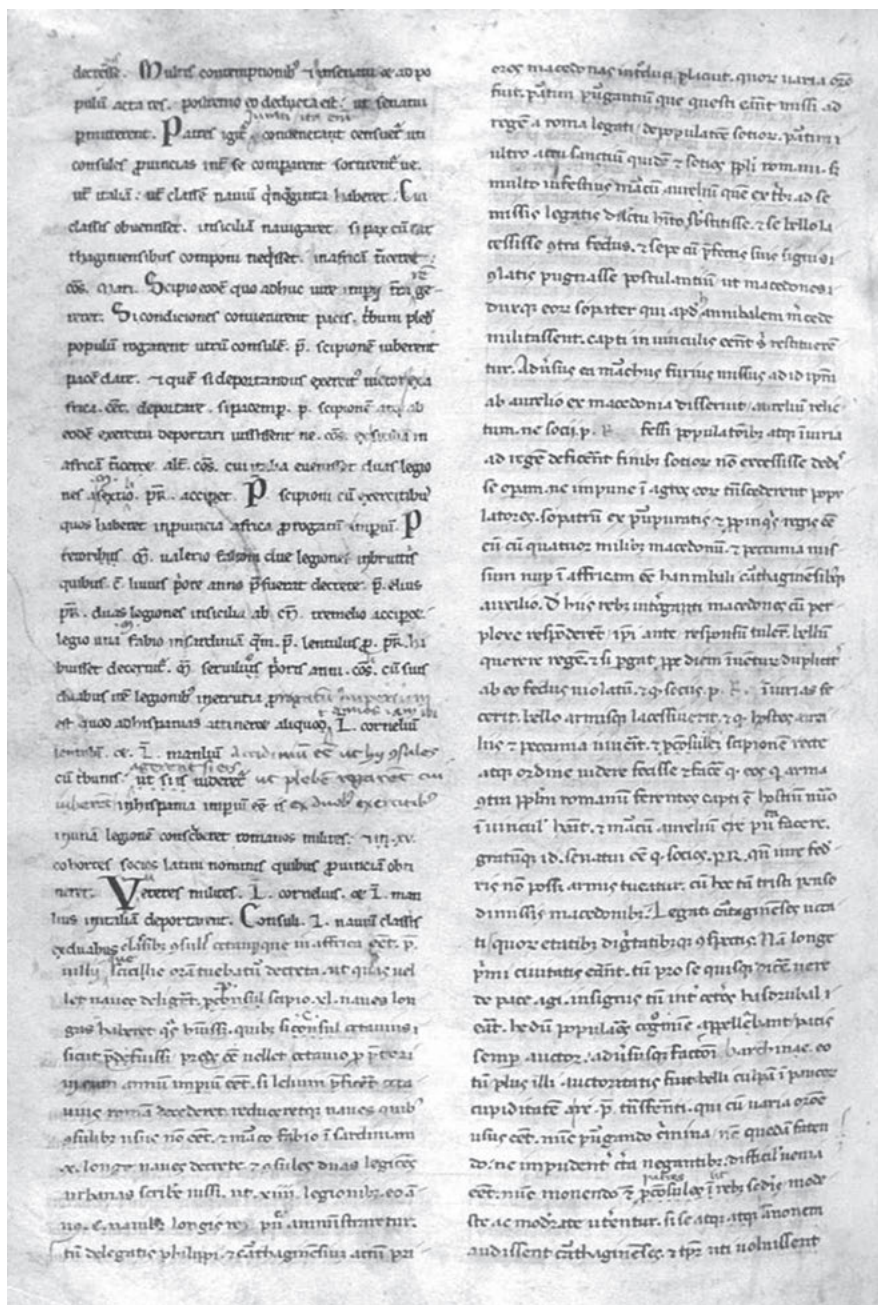 decresse. Multis contemptionib⁹ ⁊ inſenatu ⁊ ad po
pulū acta res. postremo eo deducta est: ut senatui
pmitterent. Patres igit̄ condenerant censuer̄ uti
iurati ita eni
consules puincias int̄ se compararent sortirent̄ ue.
ut̄ italiā: ut̄ classē nauiū q̄nq̄ginta haberet. Cui
classis obuenisset. insiciliā nauigaret. si pax cū car
thaginiensibus componi neq̄sset. in africā t̄iceret:
cōs. mari. Scipio eodē quo adhuc iure impij t̄ra ge
reret. Si condiciones conuenirent pacis. tbuni pleb̄
populū rogarent utrū consulē. p̄. scipionē iuberent
pacē dare. ⁊ quē si deportandus exercit⁹ uictor exa
frica. eēt. deportare. si pacem p. p. scipionē atq; ab
eodē exercitū deportari iussissent ne. cōs. ex sicilia in
africā t̄iceret. alt̄. cōs. cui italia euenisset duas legio
nes a sextio. pR̄. acciperet. P. scipioni cū exercitibus
quos haberet in puincia africa progatū impiū. P
retoribus. Q̄. ualerio falconi due legiones inbruttis
quibus. c̄. liuius pore anno p̄fuerat decrete. p̄. elius
pR̄. duas legiones insicilia ab cn̄. tremelio acciperet
legio una fabio insardiniā q̄m. p̄. lentulus p̄. pR̄. ha
buisset decernit̄. Q̄. seruilius poris anni. cōs. cū suis
duabus itē legionib⁹ inetruria progatū imperium
est quod adhispanias attineret aliquod L̄. corneliū
annos iam ibi
lentulū. ee. L̄. manliū accidinū eē ut hij ꝯsules
agerent si eis
cū tbunis. ut si is uideret̄ ut plebē rogarēt cui
iuberēt inhispania impiū eē is ex duob⁹ exercitib⁹
inunā legionē conscriberet romanos milites. ⁊ in. xv.
cohortes socios latini nominis quibus puinciā obti
neret. Veteres milites. L̄. cornelius. ee L̄. man
lius initaliā deportarent. Consuli. L. nauiū classis
exduabus classib; ꝯsuli octauioque in affrica eēt. p̄.
uillij que sicilie orā tuebatū decreta. ut quas uel
let naues deligēt. pconsul scipio. xl. naues lon
gas haberet q̄s h̄uissz. quib; si consul octauius
sicut p̄defuissz p̄eēe eē uellet octauio p p̄tori
in eum annū impiū eēt. si leliū p̄ficēt octa
uius romā decederet reduceretq; naues quib⁹
ꝯsulib; usus nō eēt. ⁊ marco fabio ī sardiniam
x. longe naues decrete. ⁊ ꝯsules duas legiōes
urbanas scribe iussi. ut. xiiii. legionib; eo ā
no. c. nauib; longis res pu amministraretur.
tū delegatis philippi. ⁊ carthaginēsiū actū pri
oros macedonas int̄duci placuit. quor uaria orō
fuit. partim p̄ugantiū que questi eānt missi ad
regē a roma legati. depopulatē sotior. partim i
ultro accusantiū quidē ⁊ sotios ppli romani. s;
multo infestius marcū aureliū quē ex trib; ad se
missis legatis dilectu hīto sbstitisse. ⁊ se bello la
cessisse ꝯtra fedus. ⁊ sepe cū p̄fectis suis signis
ꝯlatis pugnasse postulantiū ut macedones
duxq; eor sopater qui apd annibalem mcede
militassent. capti in uinculis eēnt s; restituerē
tur. Adūsus ea marchus furius missus ad id ipm̄
ab aurelio ex macedonia disseruit aureliū relic
tum. ne socij p. R. fessi populatōib; atq; iniuria
ad regē deficēnt finib; sotior nō excessisse dedi⁹
se operam. ne impune ī agros eor tn̄scederent popu
latores. sopatrū ex purpuratis ⁊ ppinq⁹s regis eē
cū cū quatuor milib; macedonū. ⁊ pecunia mis
sum nup ī affricam eē hannibali cartaginēsib;q;
aurelio. De hiis reb; int̄rogati macedones cū per
plexe respōderēt ip̄i ante responsū tulerunt. bellū
querere regē. ⁊ si pgat ppe diem inuēturū dupliciter
ab eo fedus uiolatū. ⁊ q; socijs. p. R. iniurias fe
cerit. bello armisq; lacessiuerit. ⁊ q; hostes auxi
lijs ⁊ pecunia iuuerit. ⁊ pcōsules scipionē recte
atq; ordine uidere fecisse ⁊ facē q; eos q; arma
ꝯtra pplm romanū ferentes capti ē hostiū nūo
ī uinculis haīt. ⁊ marcū aureliū e re pu facere.
gratūq; id. senatui eē q; socios. p. R. qn̄ iure fed
ris nō possz armis tueatur. cū hoc tā tristi rēso
dimissis macedonib;. Legati cartaginēses uoca
ti. quor etatib; dig̃tatib;q; ꝯspectis. Nā longe
p̄mi ciuitatis eānt. tū pro se quisq; dicē uere
de pace agi. insignis tn̄ int̄ ceteros hasdrubal
eāt. hedū populares cognomīe appellabant pacis
semp auctor. aduersusq; factōi barchinae. eo
tū plus illi auctoritatis fuit belli culpā ī paucor
cupiditatē a re. p. tn̄sferenti. qui cū uaria orōe
usus eēt. nūc purgando crimina nē quedā faten
do. ne impudenter c̄ta negantib; difficilior uenia
eēt. nūc monendo ⁊ pcōsules ī reb; sedis mode
ste ac moderate uterentur. si se atq; atq; annonem
audissent cartaginēses. ⁊ tpe uti uoluissent